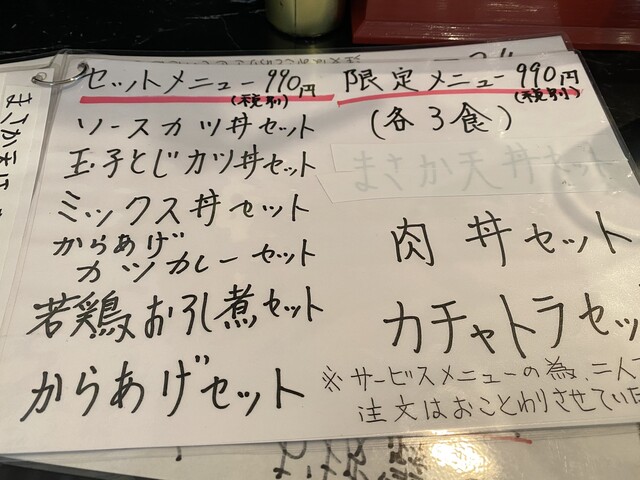 セットメニュー 990円
(税別)
ソースカツ丼セット
玉子とじカツ丼セット
ミックス丼セット
からあげ
カツカレーセット
若鶏おろし煮セット
からあげセット
限定メニュー 990円
(税別)
(各3食)
まさか天丼セット
肉丼セット
カチャトラセッ
※サービスメニューの為、二人
注文はおことわりさせてい